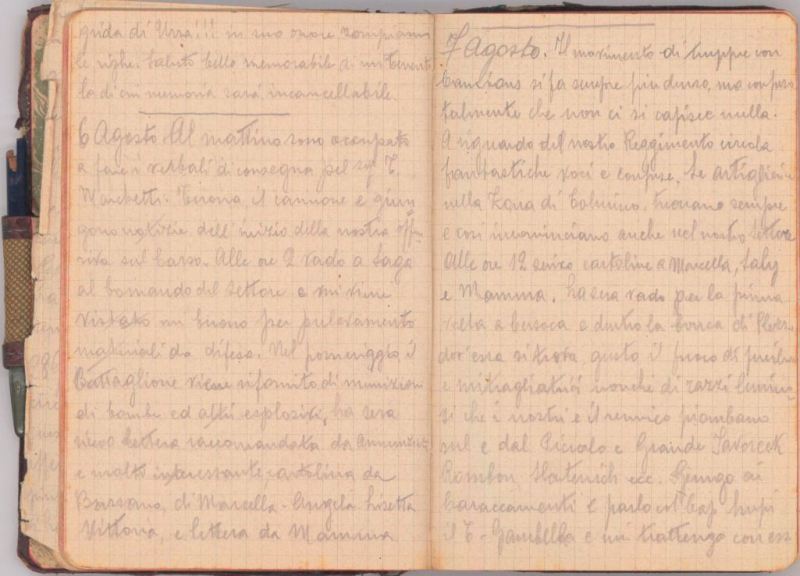 grida di Urra!!! in suo onore rompiamo
le righe. Saluto bello memorabile di un Tenente
la di cui memoria sarà incancellabile.
6 Agosto Al mattino sono occupato
a fare i verbali di consegna pel sig T.
Marchetti. Tuona, il cannone e giun
gono notizie dell'inizio della nostra offen
siva sul Carso. Alle ore 2 vado a Saga
al Comando del Settore e mi viene
vistato un buono per prelevamento
materiali da difesa. Nel pomeriggio il
Battaglione viene rifornito di munizioni
di bombe ed altri esplosivi, la sera
ricevo lettera raccomandata da
e molto interessante cartolina da
Bassano, di Marcella - Angela Lisetta
Vittoria, e lettera da Mamma
7 Agosto. Il movimento di truppe con
camions si fa sempre più denso, ma
talmente che non ci si capisce nulla.
A riguardo del nostro Reggimento circola
fantastiche voci e confuse. Le artiglierie
nella Zona di Tolmino, tuonano sempre
e così incominciano anche nel nostro Settore
Alle ore 12 scrivo cartoline a Marcella,
e Mamma. La sera vado per la prima
volta a Cezsoca e dietro la conca di Plezzo
dov'essa si trova, gusto il fuoco di fucileria
e mitragliatrici nonchè di razzi lumino
si che i nostri e il nemico piombano
sul e dal Piccolo e Grande Javorcek
Rombon, ecc. Giungo ai
baraccamenti e parlo col Cap
il T. Gambella e mi trattengo con essi